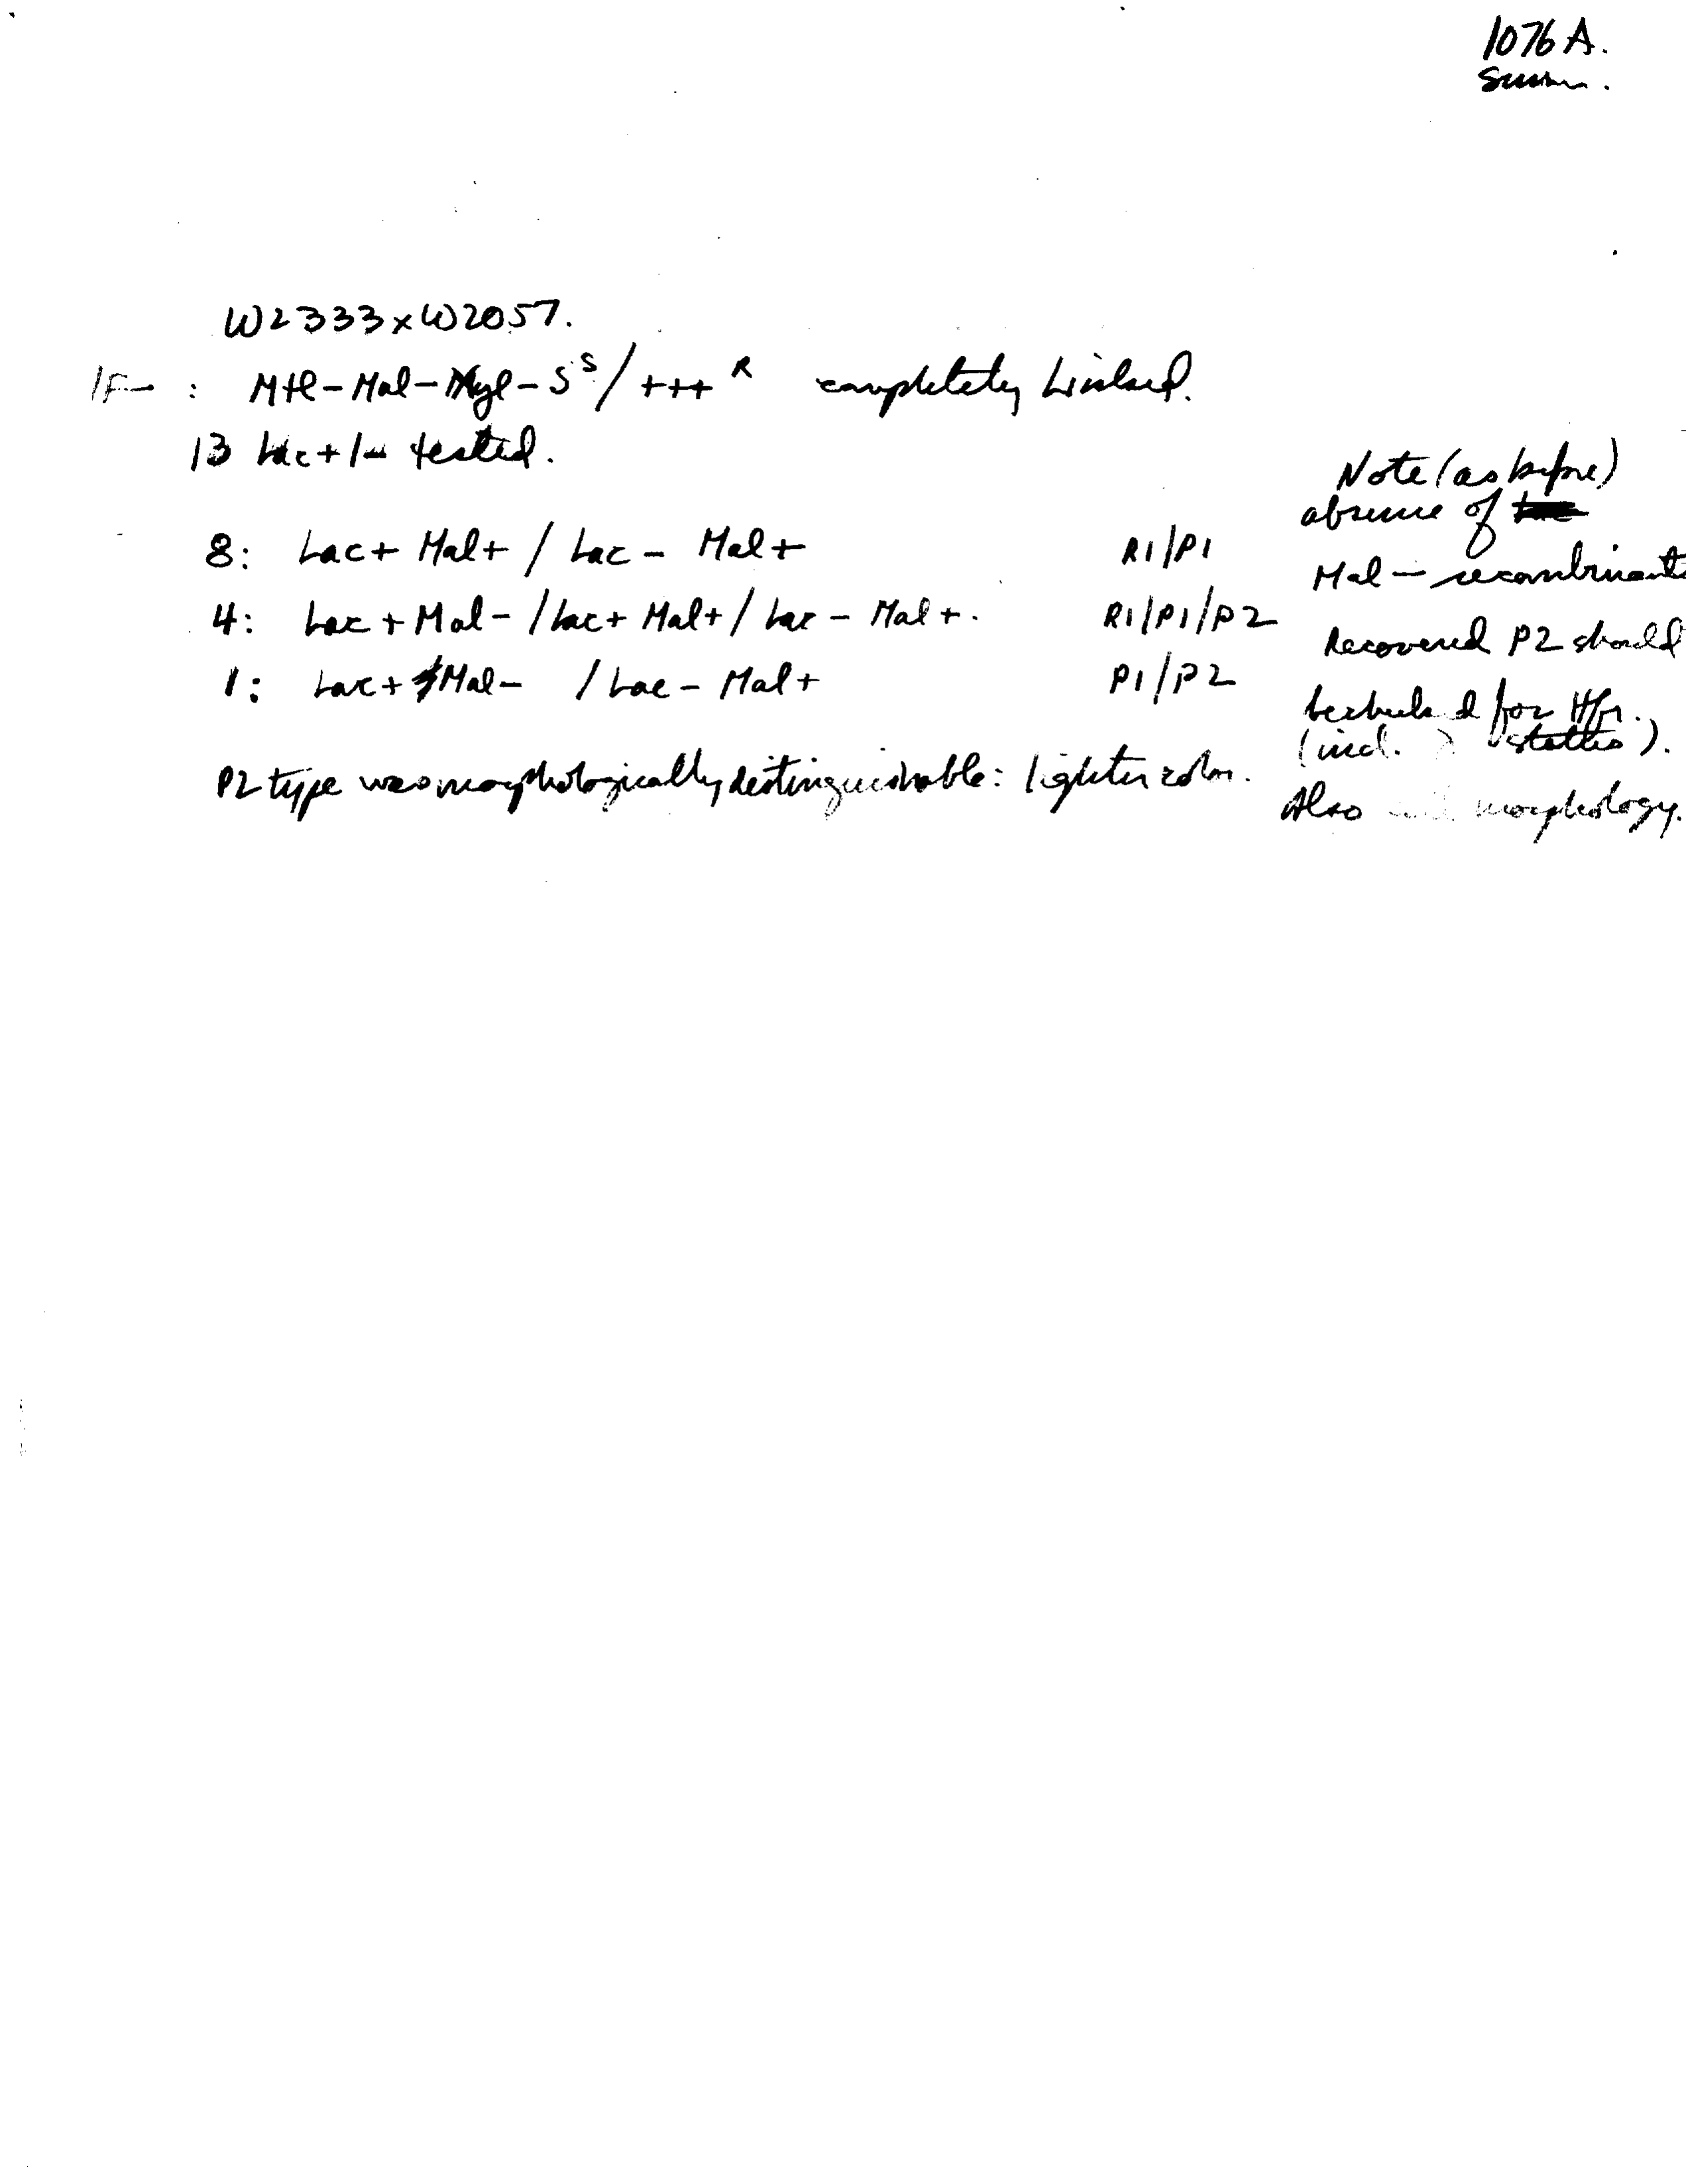 1076 A.
Summ.
W2333 x W2057.
1F- : Mtl-Mal-Xyl-S^S / +++ ^R completely linked.
13 Lac+/- tested.
8: Lac+ Mal+ / Lac- Mal+ R1/P1
4: Lac+Mal- / Lac+ Mal+ / Lac- Mal+. R1/P1/P2
1: Lac+ Mal- / Lac- Mal+ P1/P2
P2 type was morphologically distinguishable: lighter color.
Note (as before)
absence of
Mal- recombinants
Recovered P2 should
be checked for Hfr.
(incl.
Also morphology.